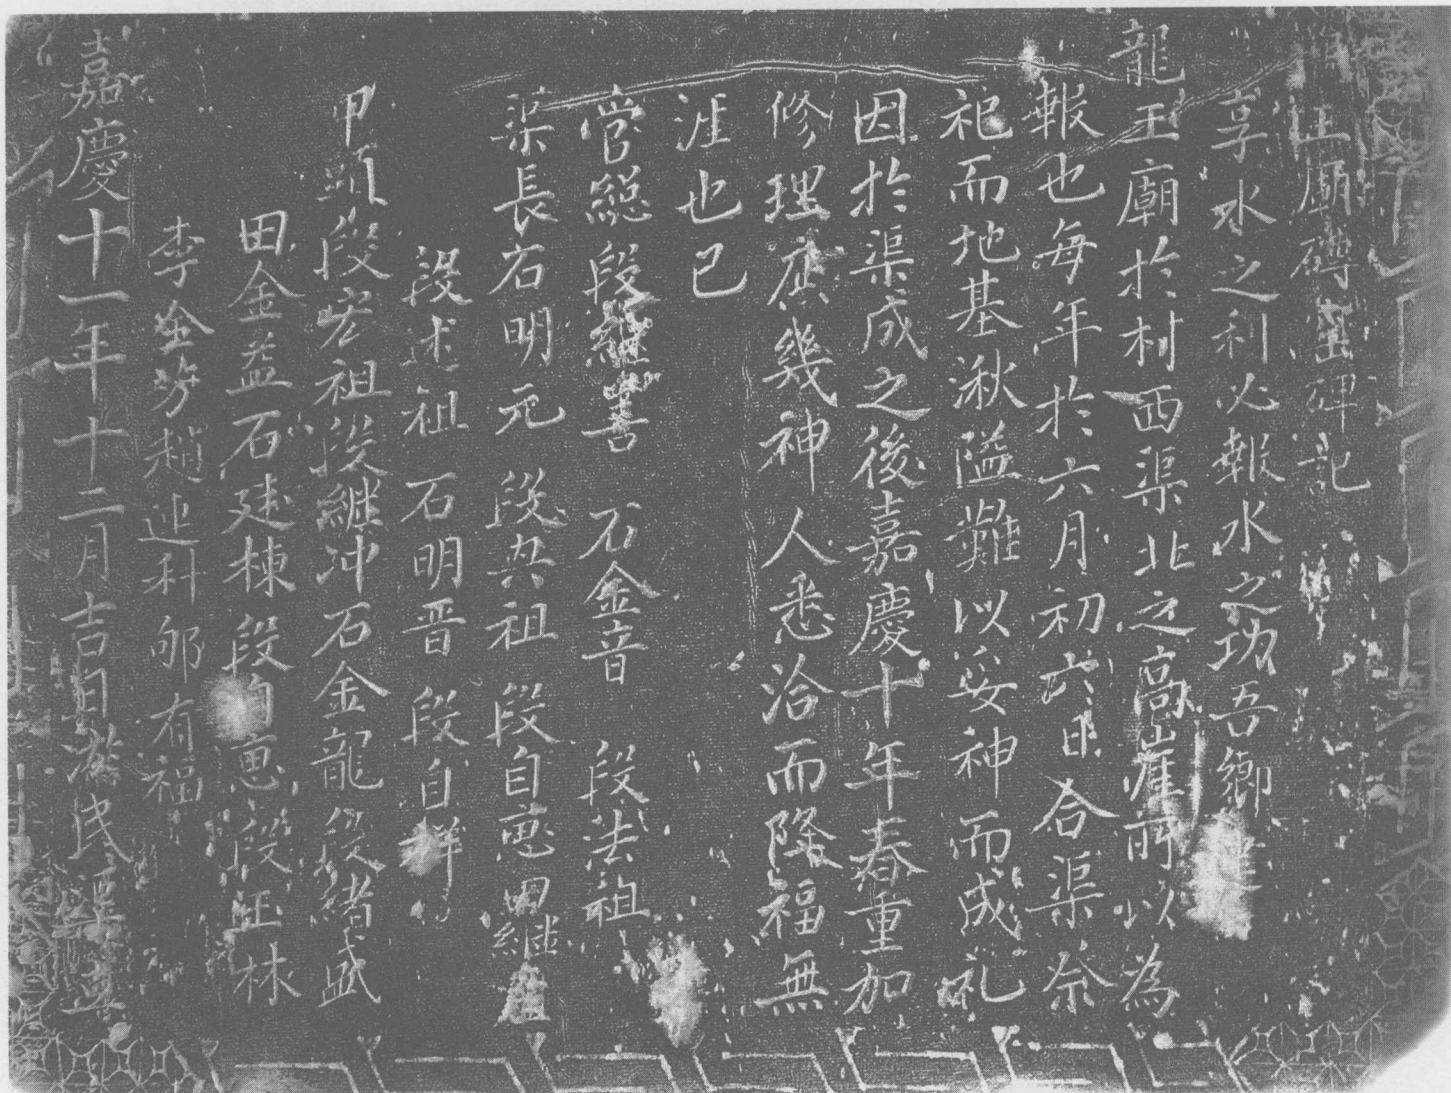 王廟磚窑碑記
享水之利必報水之功吾鄉建
龍王廟於村西渠北之高崖所以為
報也每年於六月初六日合渠祭
祀而地基湫隘難以妥神而成礼
因於渠成之後嘉慶十年春重加
修理庶幾神人悉洽而降福無
涯也已
管總段繼善 石金音 段法祖
渠長石明元 段共祖 段自惠 田繼
段述祖 石明晋 段自祥
甲頭段宏祖段繼冲石金龍段緒盛
田金益石廷棟段自惠段玉林
李金芳趙廷科邬有福
嘉慶十一年十二月吉日 立